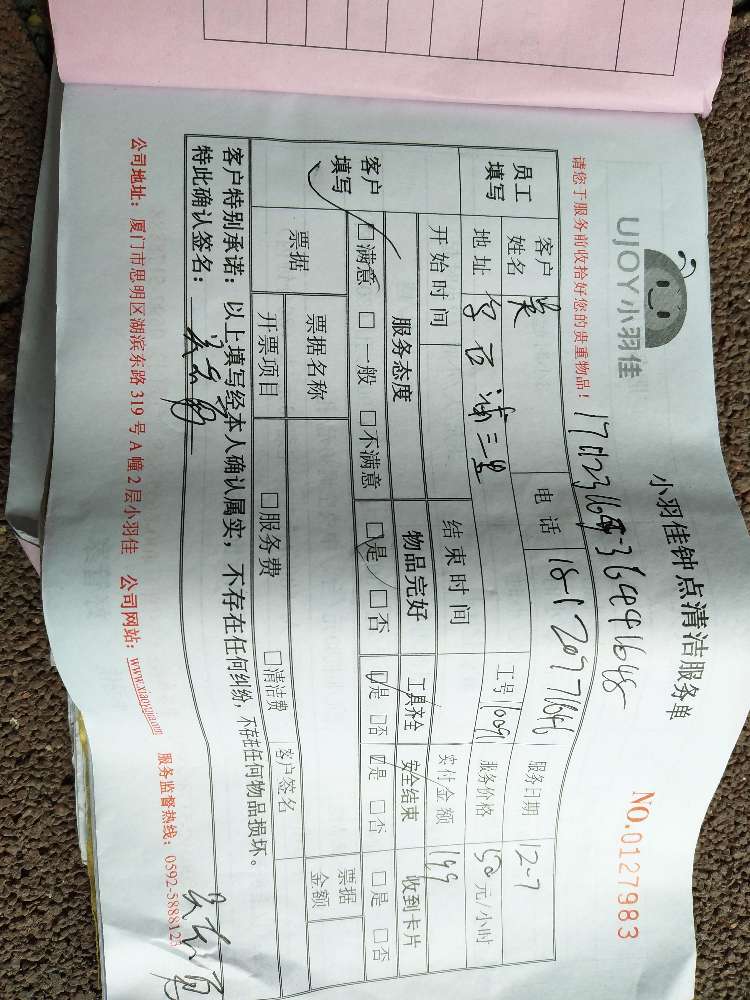 UJOY小羽佳
小羽佳钟点清洁服务单
NO.0127983
请您于服务前收拾好您的贵重物品！
员工填写
客户姓名 吴 电话 服务日期 12-7
地址 三里 工号 10091 服务价格 50 元/小时
开始时间 结束时间 实付金额 199
客户填写
服务态度 物品完好 工具齐全 安全结束 收到卡片
□满意 □一般 □不满意 □是 □否 □是 □否 □是 □否 □是 □否
票据 票据名称 客户签名 票据金额
开票项目 □服务费 □清洁费
客户特别承诺：以上填写经本人确认属实，不存在任何纠纷，不存在任何物品损坏。
特此确认签名：
公司地址：厦门市思明区湖滨东路 319 号 A 幢 2 层小羽佳 公司网站：www.xiaoyujia.com 服务监督热线：0592-5888125